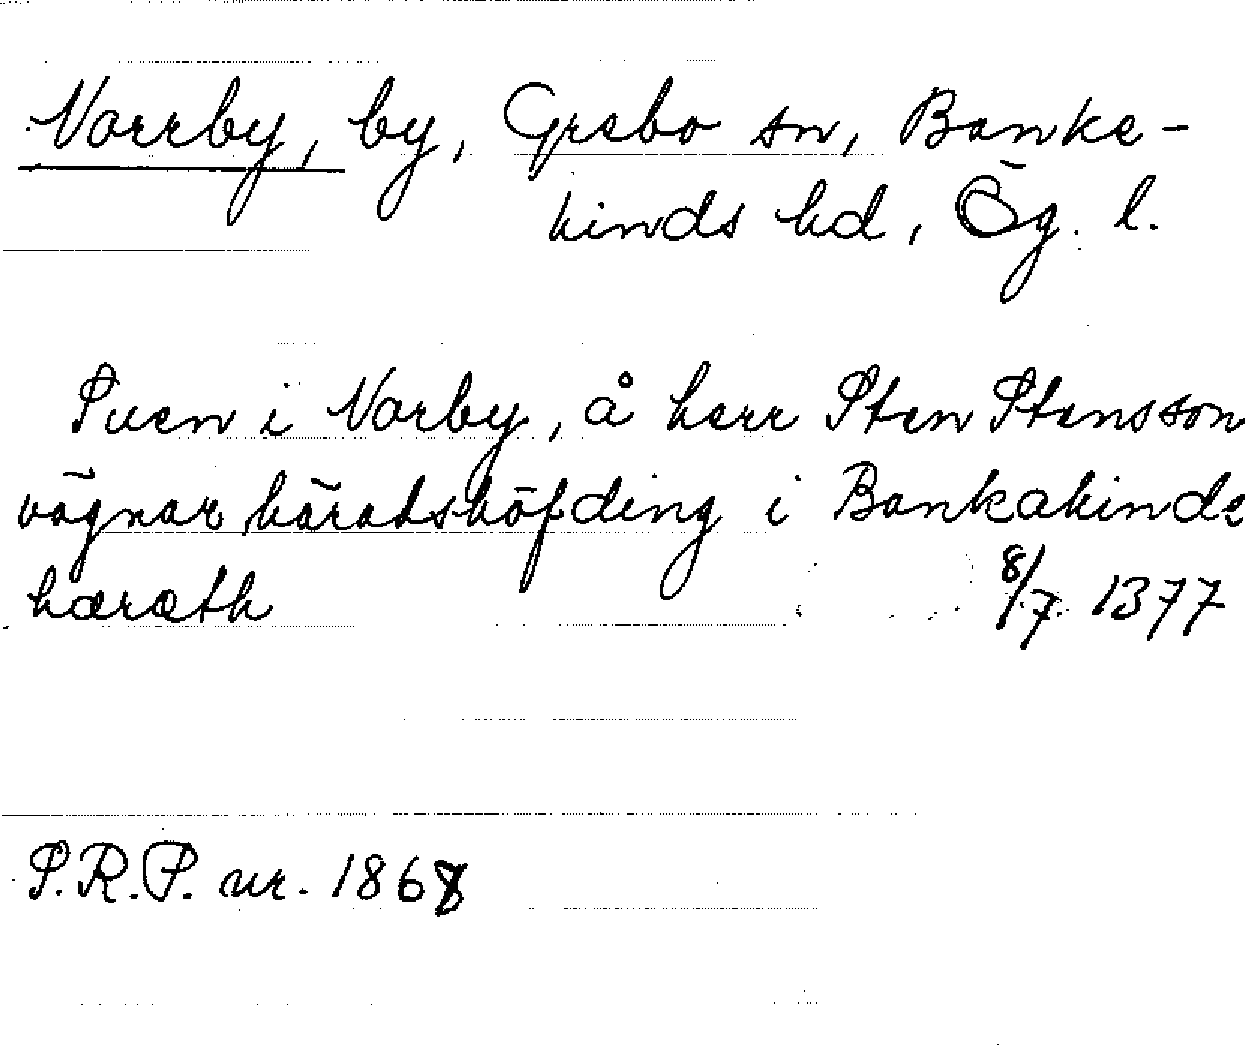 Norrby, by, Grebo sn, Banke-
kinds hd, Ög. l.
Suen i Norby, å herr Sten Stensson
vägnar häradshöfding i Bankakinds
hæræth 8/7 1377
S.R.P. nr. 1868